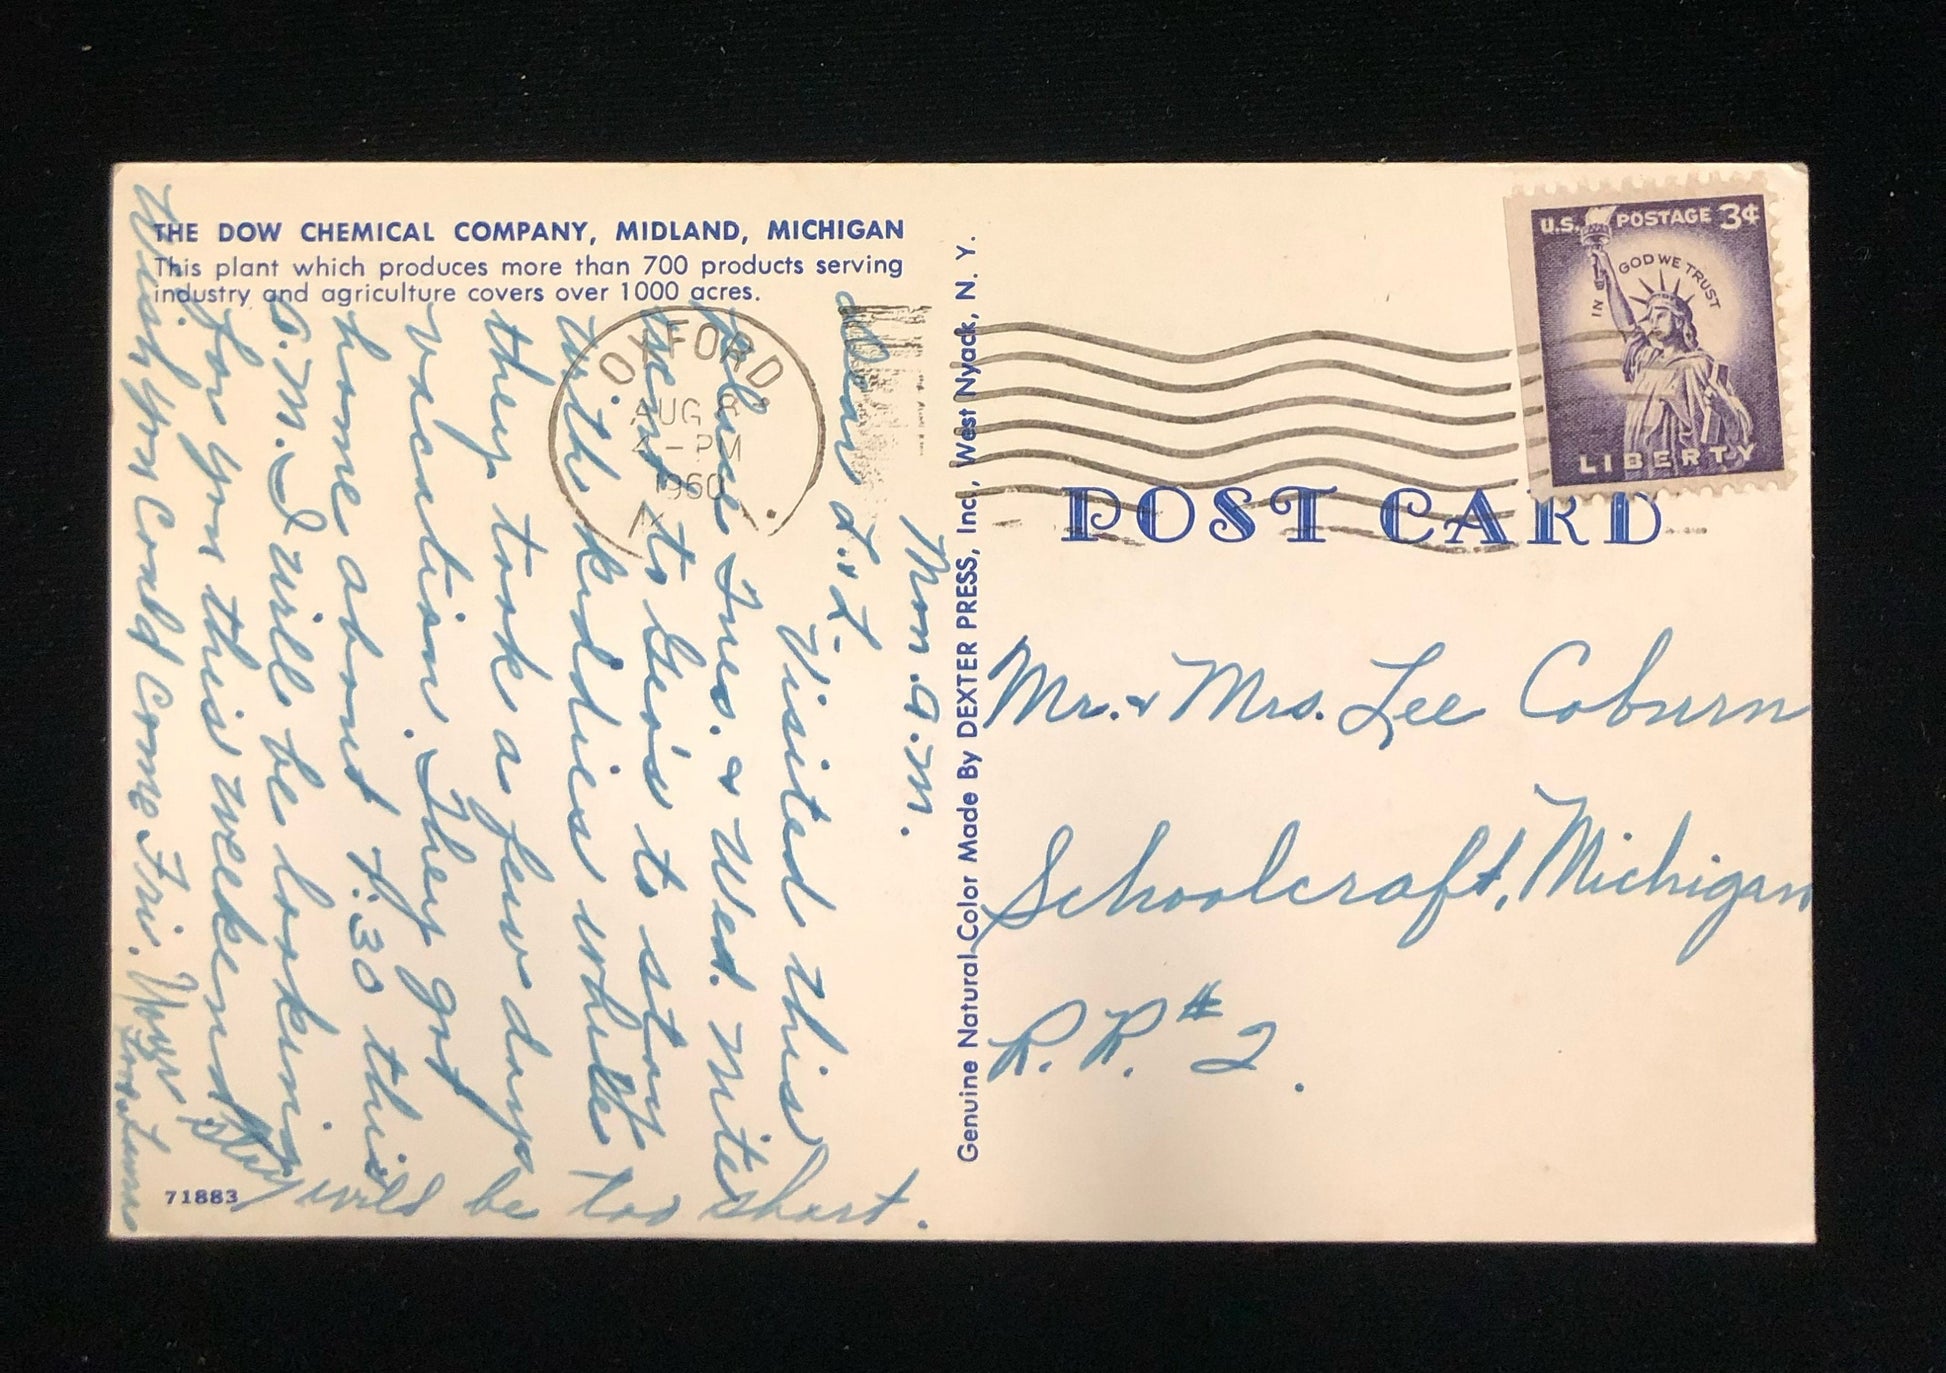 THE DOW CHEMICAL COMPANY, MIDLAND, MICHIGAN
This plant which produces more than 700 products serving
industry and agriculture covers over 1000 acres.
Mon. A.M.
Dear L. & L. -
Visited this
place Tues. & Wed. nites
went to Geo's to stay
with kiddies while
they took a few days
vacation. They got
home about 4:30 this
A.M. I will be looking
for you this weekend
Wish you could come Fri. Your
stay will be too short.
71883
Genuine Natural Color Made By DEXTER PRESS, Inc., West Nyack, N. Y.
OXFORD
AUG 8
4 - PM
1960
U.S. POSTAGE 3¢
IN GOD WE TRUST
LIBERTY
POST CARD
Mr. & Mrs. Lee Coburn
Schoolcraft, Michigan
R. R. # 2.